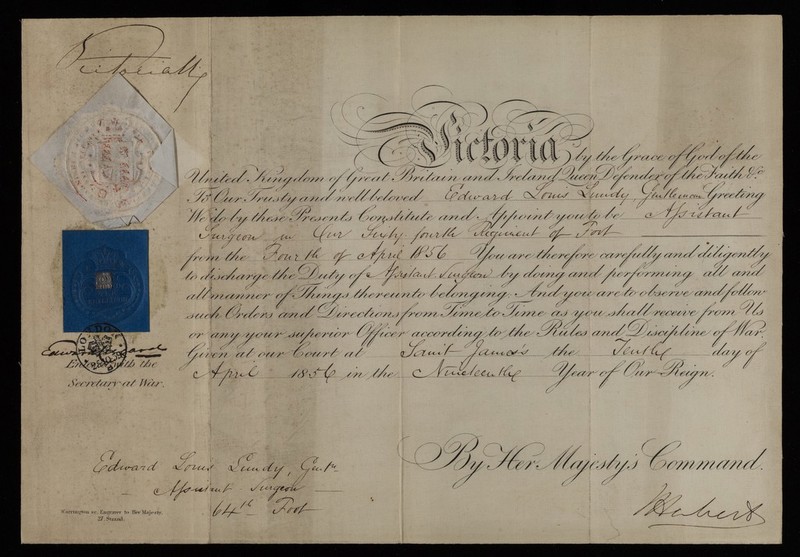 Victoria R
Victoria by the Grace of God of the
United Kingdom of Great Britain and Ireland Queen Defender of the Faith &c
To Our Trusty and well beloved Edward Louis Lundy Gentleman Greeting
We do by these Presents Constitute and Appoint you to be Assistant
Surgeon in Our Sixty fourth Regiment of Foot
from the Fourth of April 1856 You are therefore carefully and diligently
to discharge the Duty of Assistant Surgeon by doing and performing all and
all manner of Things thereunto belonging. And you are to observe and follow
such Orders and Directions from Time to Time as you shall receive from Us
or any your superior Officer according to the Rules and Discipline of War.
Given at our Court at Saint James's the Tenth day of
April 1856 in the Nineteenth Year of Our Reign.
LONDON
with the
Secretary at War.
By Her Majesty's Command.
Edward Louis Lundy, Gentn.
Assistant Surgeon
64th Foot
Engraver to Her Majesty.
27, Strand.